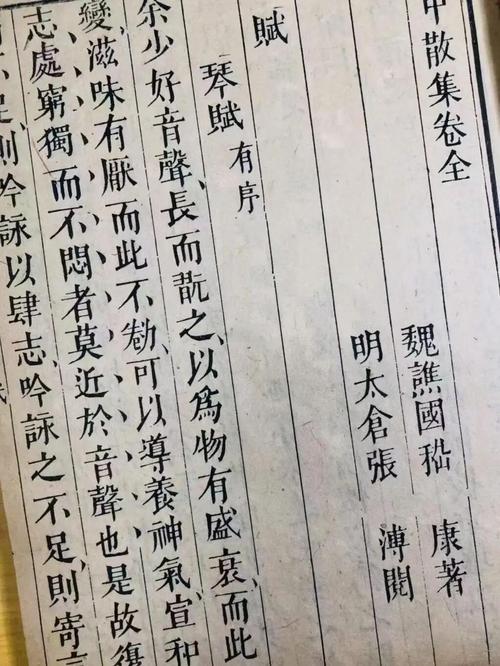 中散集卷全
魏譙國嵇 康著
明太倉張 溥閱
賦
琴賦有序
余少好音聲、長而翫之、以爲物有盛衰、而此
變、滋味有厭而此不勌、可以導養神氣、宣和
志、處窮獨而不悶者莫近於音聲也是故復
不足、則吟詠以肆志、吟詠之不足、則寄言